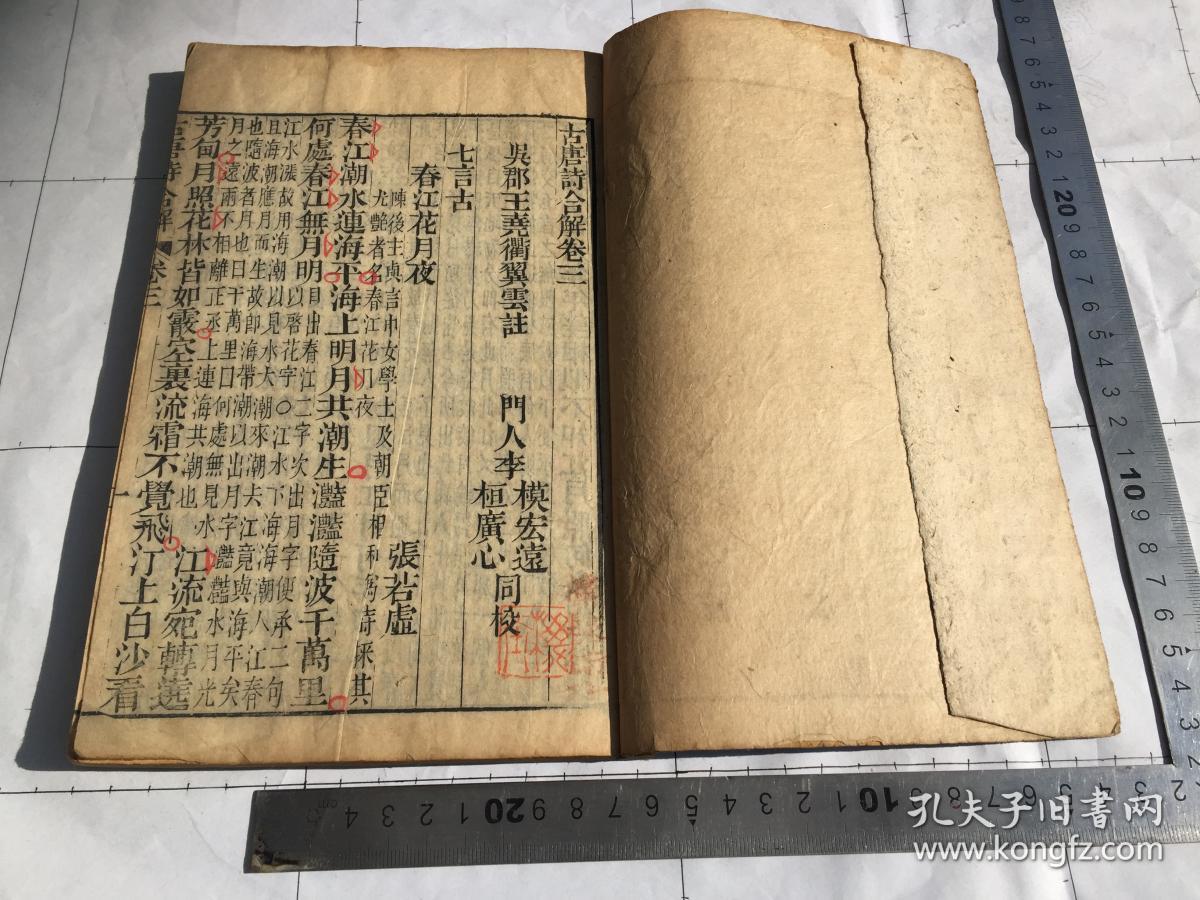 古唐詩合解卷三
吳郡王堯衢翼雲註
門人李
模宏遠
桓廣心
同校
七言古
春江花月夜
張若虛
陳後主與宮中女學士及朝臣相和為詩採其
尤艷者名春江花月夜
春江潮水連海平海上明月共潮生灩灩隨波千萬里
何處春江無月明
目出春江二字次出月字便承二句
江水漲故用海潮以啓花字〇江水下海海潮入江春
且海潮應月而生故即海帶潮以見水大潮來潮去江竟與海平矣
也隨波者月也曰千萬里曰何處無見水月光
月之遠而不相離正承上連海共潮也
江流宛轉遶
芳甸月照花林皆如霰空裏流霜不覺飛汀上白沙看
古唐詩合解
卷三
一
孔夫子旧書网
www.kongfz.com